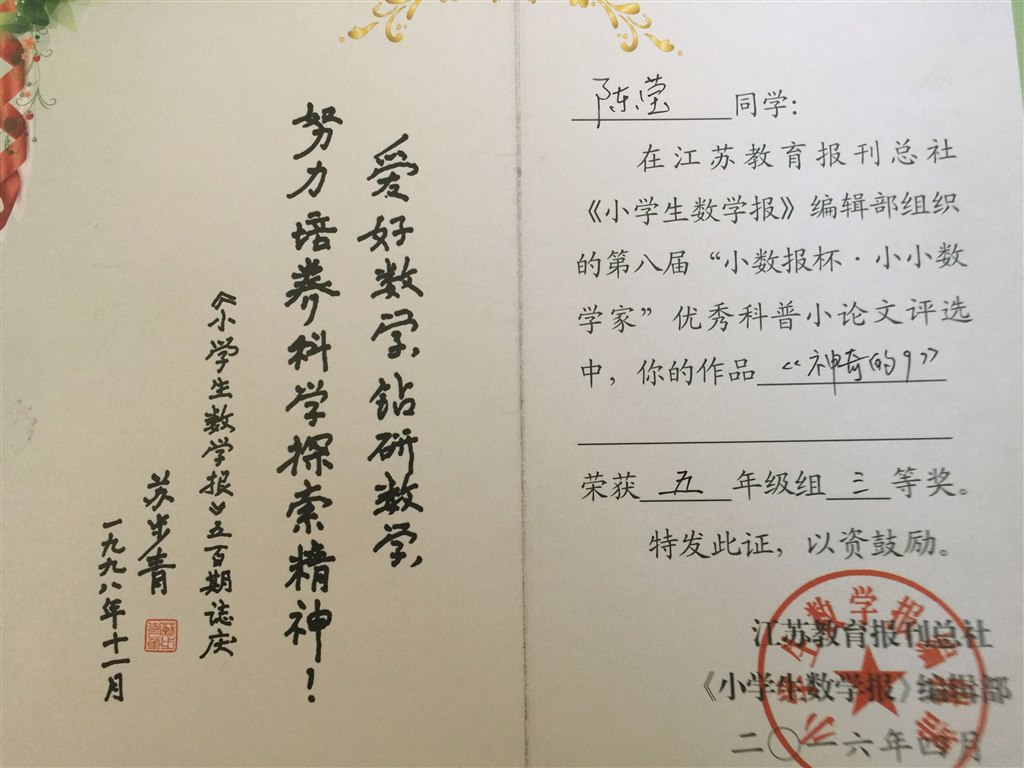 爱好数学,钻研数学,
努力培养科学探索精神!
《小学生数学报》五百期誌庆
苏步青
一九九八年十一月
陈莹同学:
在江苏教育报刊总社
《小学生数学报》编辑部组织
的第八届“小数报杯·小小数
学家”优秀科普小论文评选
中,你的作品《神奇的9》
荣获五年级组三等奖。
特发此证,以资鼓励。
江苏教育报刊总社
《小学生数学报》编辑部
二〇一六年四月